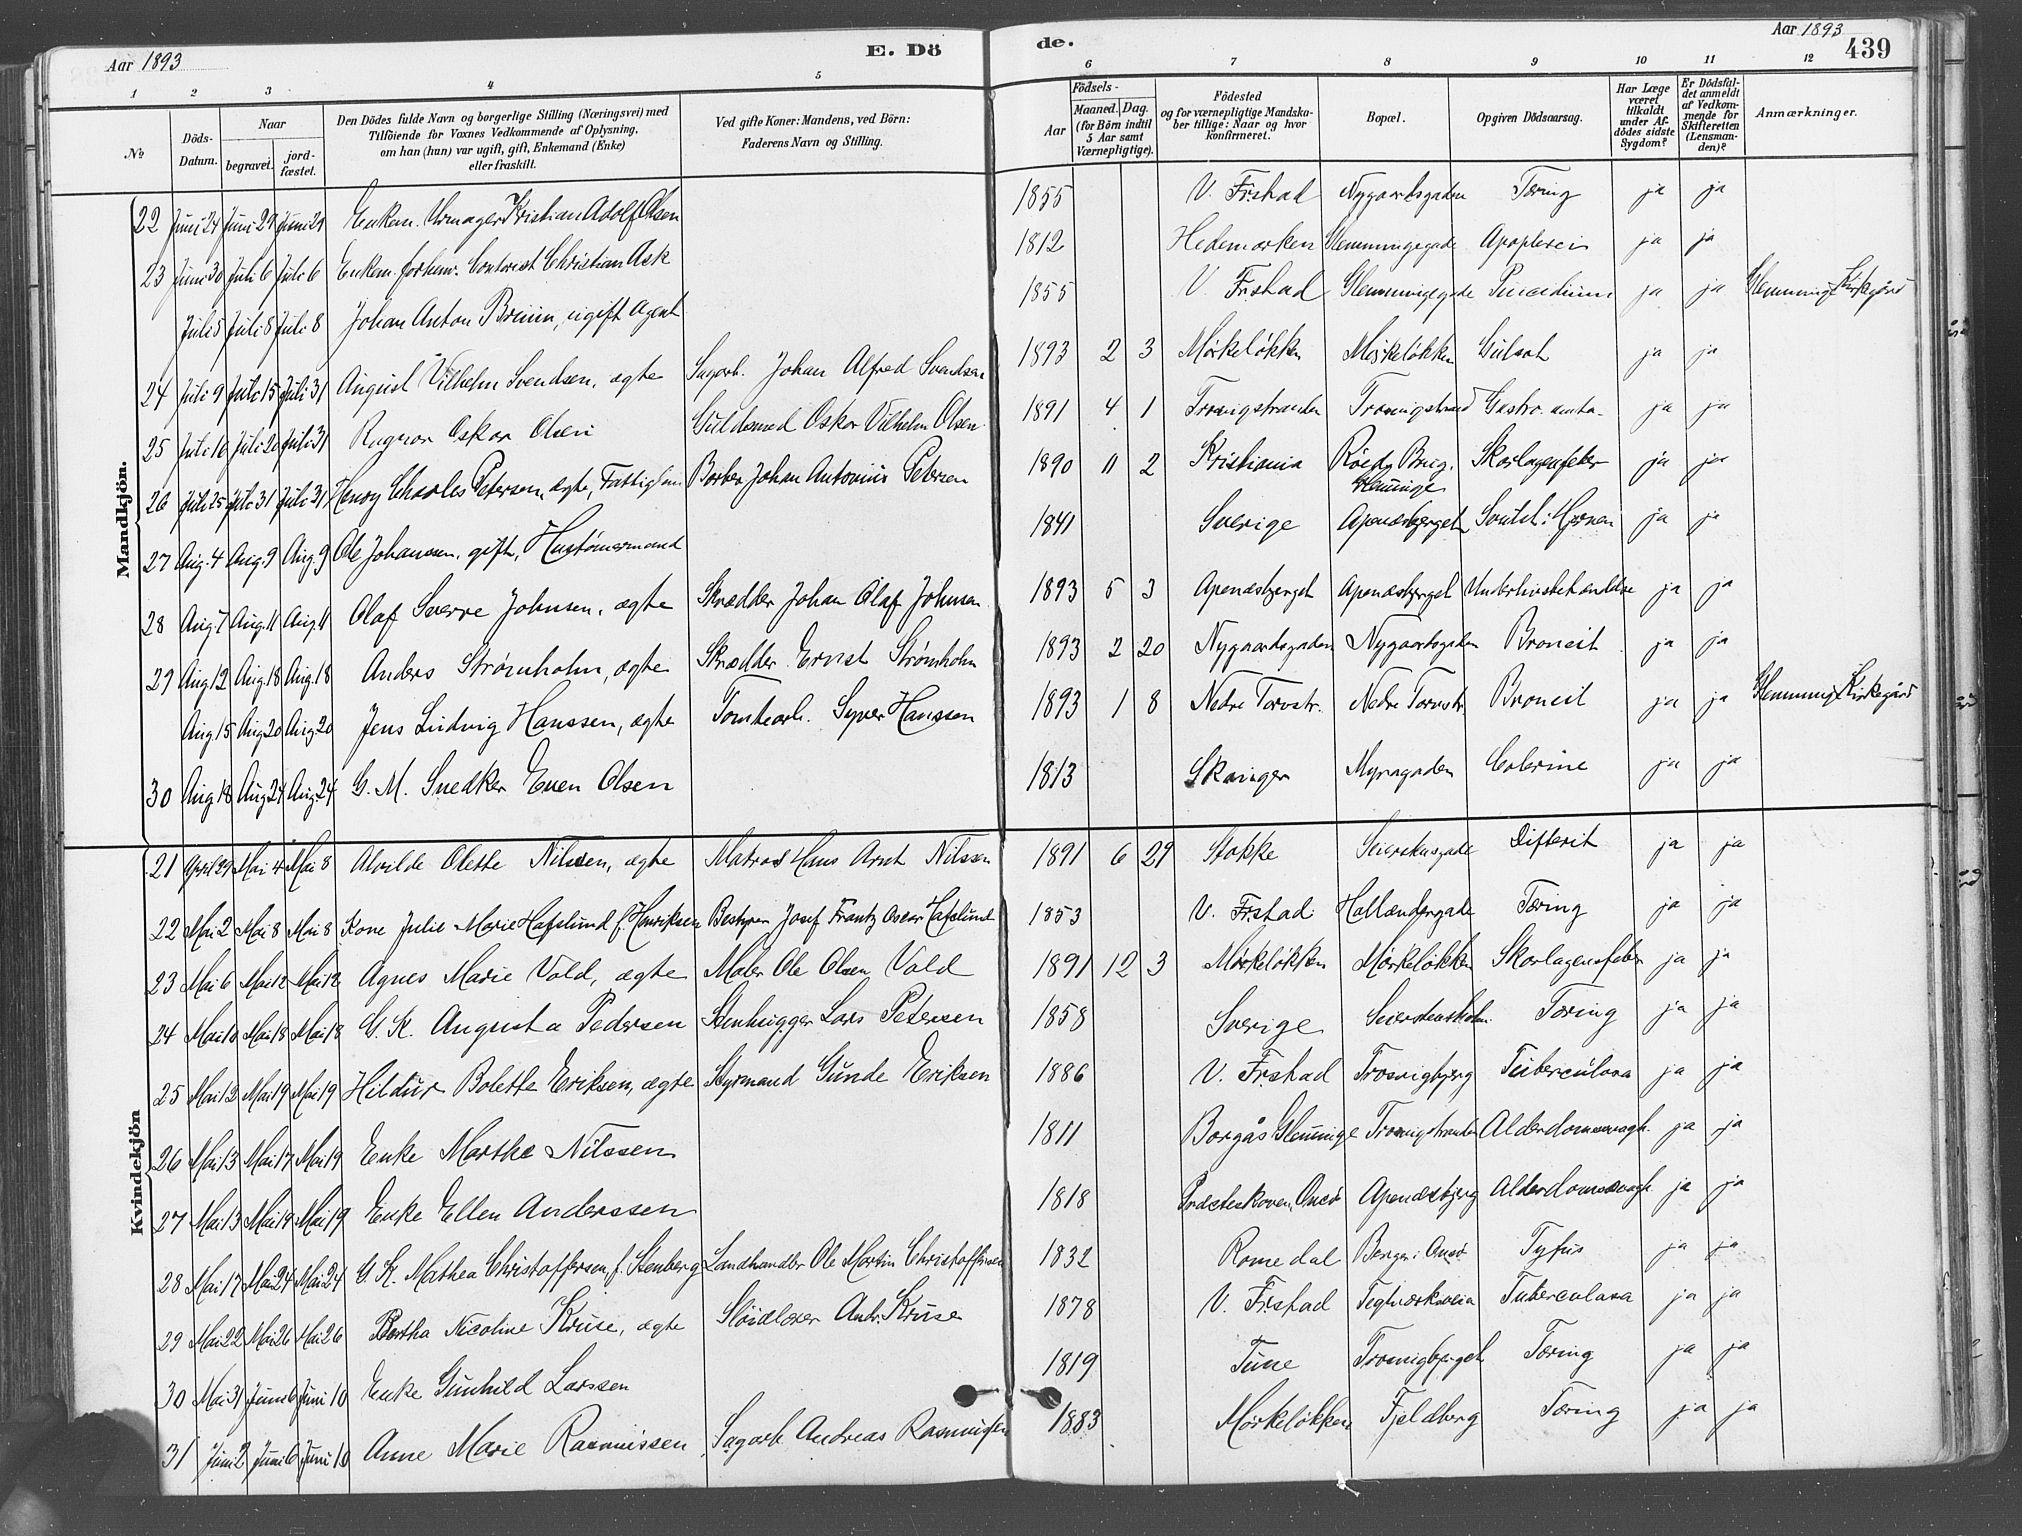 Aar 1893
E. Dö
de.
Aar 1893
439
1 2 3 4 5 6 7 8 9 10 11 12
No
Döds-Datum.
Naar
begravet.
jord-fæstet.
Den Dödes fulde Navn og borgerlige Stilling (Næringsvei) med
Tilföiende for Voxnes Vedkommende af Oplysning,
om han (hun) var ugift, gift, Enkemand (Enke)
eller fraskilt.
Ved gifte Koner: Mandens, ved Börn:
Faderens Navn og Stilling.
Födsels-
Aar
Maaned. Dag.
(for Börn indtil
5 Aar samt
Værnepligtige).
Födested
og for værnepligtige Mandska-
ber tillige: Naar og hvor
konfirmeret.
Bopæl.
Opgiven Dödsaarsag.
Har Læge
været
tilkaldt
under Af-
dödes sidste
Sygdom?
Er Dödsfal-
det anmeldt
af Vedkom-
mende for
Skifteretten
(Lensman-
den)?
Anmærkninger.
Mandkjön.
22 Juni 24 Juni 29 Juni 29 Enkem. Urmager Kristian Adolf Olsen 1855 V. Fr.stad Nygaardsgaden Tæring ja ja
23 Juni 30 Juli 6 Juli 6 Enkem. forhenv. Contorist Christian Ask 1812 Hedemarken Glemmingegade Apoplexi ja ja
Juli 5 Juli 8 Juli 8 Johan Anton Bruun, ugift Agent 1855 V. Fr.stad Glemmingegade ja ja Glemminge Kirkegård
24 Juli 9 Juli 15 Juli 31 August Vilhelm Svendsen, ægte Sagarb. Johan Alfred Svendsen 1893 2 3 Mørkeløkken Mørkeløkken Gulsot ja ja
25 Juli 16 Juli 20 Juli 31 Ragnar Oskar Olsen Guldsmed Oskar Vilhelm Olsen 1891 4 1 Trosvigstranden Trosvigstrand Gastro. ja ja
26 Juli 25 Juli 31 Juli 31 Henry Charles Petersen, ægte, Fattiglem Barber Johan Antonius Petersen 1890 11 2 Kristiania Røeds Brug, Glemminge Skarlagensfeber ja ja
27 Aug. 4 Aug. 9 Aug. 9 Ole Johanssen, gift, Hustømermand 1841 Sverige Apenæsberget Svulst i Hjernen ja ja
28 Aug. 7 Aug. 11 Aug. 11 Olaf Sverre Johnsen, ægte Skrædder Johan Olaf Johnsen 1893 5 3 Apenæsberget Apenæsberget ja ja
29 Aug. 12 Aug. 18 Aug. 18 Anders Strømholm, ægte Skrædder Ernst Strømholm 1893 2 20 Nygaardsgaden Nygaardsgaden Broncit ja ja
Aug. 15 Aug 20 Aug 20 Jens Ludvig Hanssen, ægte Tomtearb. Syver Hanssen 1893 1 8 Nedre Torvstr. Nedre Torvstr. Broncit ja ja Glemminge Kirkegård
30 Aug 18 Aug 24 Aug 24 G. M. Snedker Even Olsen 1813 Skainger Myragaden Colerine ja ja
Kvindekjön
21 April 29 Mai 4 Mai 8 Alvilde Olette Nilssen, ægte Matros Hans Arnt Nilssen 1891 6 29 Stokke Difterit ja ja
22 Mai 2 Mai 8 Mai 8 Kone Julie Marie Hafslund f. Henriksen Bestyrer Josef Frantz Oscar Hafslund 1853 V. Fr.stad Hollændergade Tæring ja ja
23 Mai 6 Mai 12 Mai 12 Agnes Marie Vold, ægte Maler Ole Olsen Vold 1891 12 3 Mørkeløkken Mørkeløkken Skarlagensfeber ja ja
24 Mai 10 Mai 18 Mai 18 G. K. Augusta Pedersen Stenhugger Lars Petersen 1858 Sverige Tæring ja ja
25 Mai 12 Mai 19 Mai 19 Hildur Bolette Eriksen, ægte Styrmand Gunde Eriksen 1886 V. Fr.stad Trosvigbjerg Tuberculosa ja ja
26 Mai 13 Mai 17 Mai 19 Enke Marthe Nilssen 1811 Borgås Glemminge Trosvigstranden Alderdomssvagh. ja ja
27 Mai 13 Mai 19 Mai 19 Enke Ellen Anderssen 1818 Præsteskoven, Onsø Apenæsbjerg Alderdomssvagh. ja ja
28 Mai 17 Mai 24 Mai 24 G. K. Mathea Christoffersen, f. Stenberg Landhandler Ole Martin Christoffersen 1832 Romedal Berge i Onsø Tyfus ja ja
29 Mai 22 Mai 26 Mai 26 Bertha Nicoline Kruse, ægte Sløidlærer Andr. Kruse 1878 V. Fr.stad Teglværksveien Tuberculosa ja ja
30 Mai 31 Juni 6 Juni 10 Enke Gunhild Larssen 1819 Tune Trosvigberget Tæring ja ja
31 Juni 2 Juni 6 Juni 10 Anne Marie Rasmussen Sagarb. Andreas Rasmussen 1883 Mørkeløkken Fjeldberg Tæring ja ja